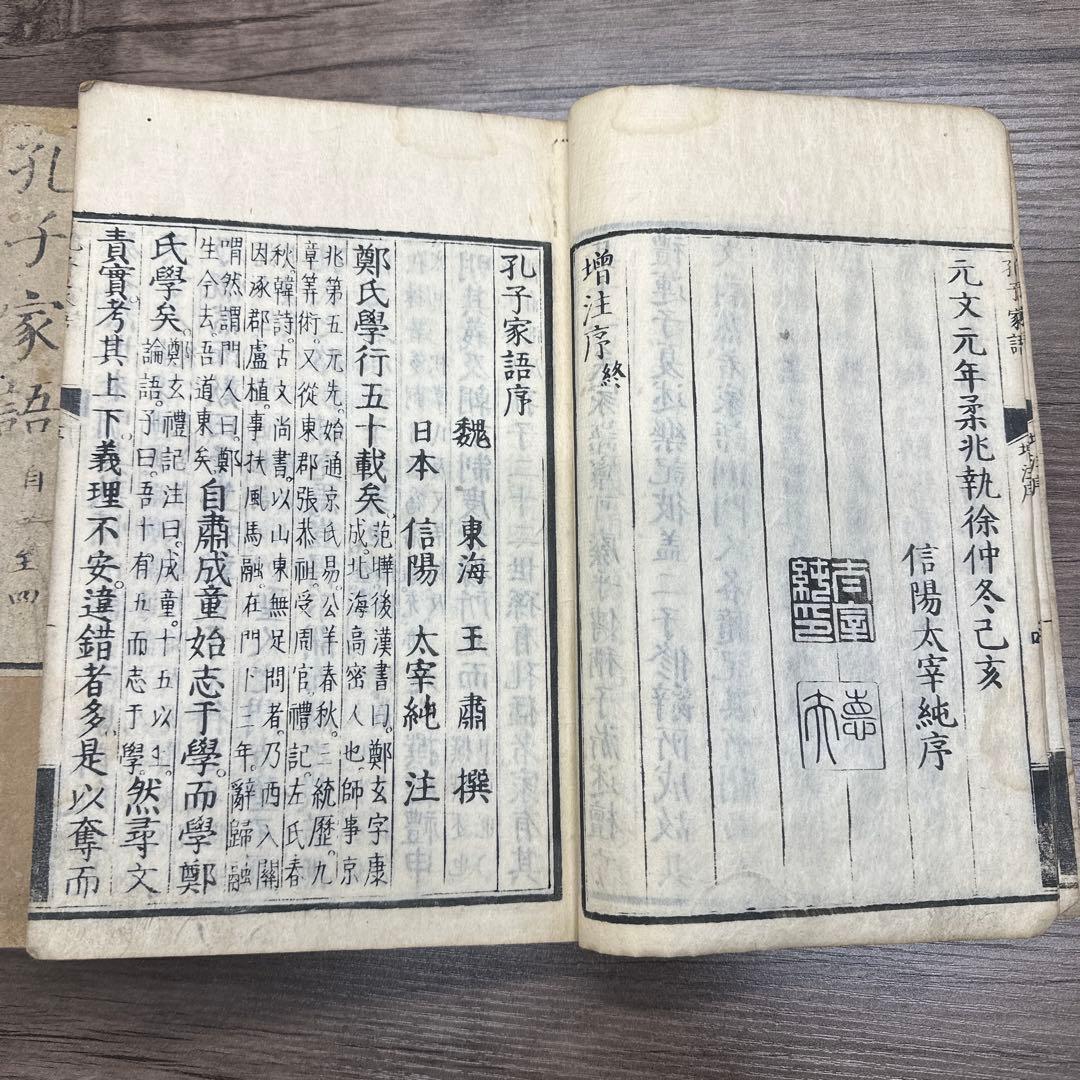 孔子家語
增注序
元文元年柔兆執徐仲冬己亥
信陽太宰純序
太宰純印
德夫
增注序終
孔子家語序
魏 東海 王肅 撰
日本 信陽 太宰純 注
鄭氏學行五十載矣。范曄後漢書曰。鄭玄字康
成。北海高密人也。師事京
兆第五元先。始通京氏易。公羊春秋。三統歷。九
章筭術。又從東郡張恭祖。受周官。禮記。左氏春
秋。韓詩。古文尚書。以山東無足問者。乃西入關。
因涿郡盧植。事扶風馬融。在門下三年。辭歸。融
喟然謂門人曰。鄭
生今去。吾道東矣。自肅成童始志于學。而學鄭
氏學矣。鄭玄禮記注曰。成童。十五以上。
論語。子曰。吾十有五而志于學。然尋文
責實。考其上下。義理不安。違錯者多。是以奪而
孔子家語 自一至四